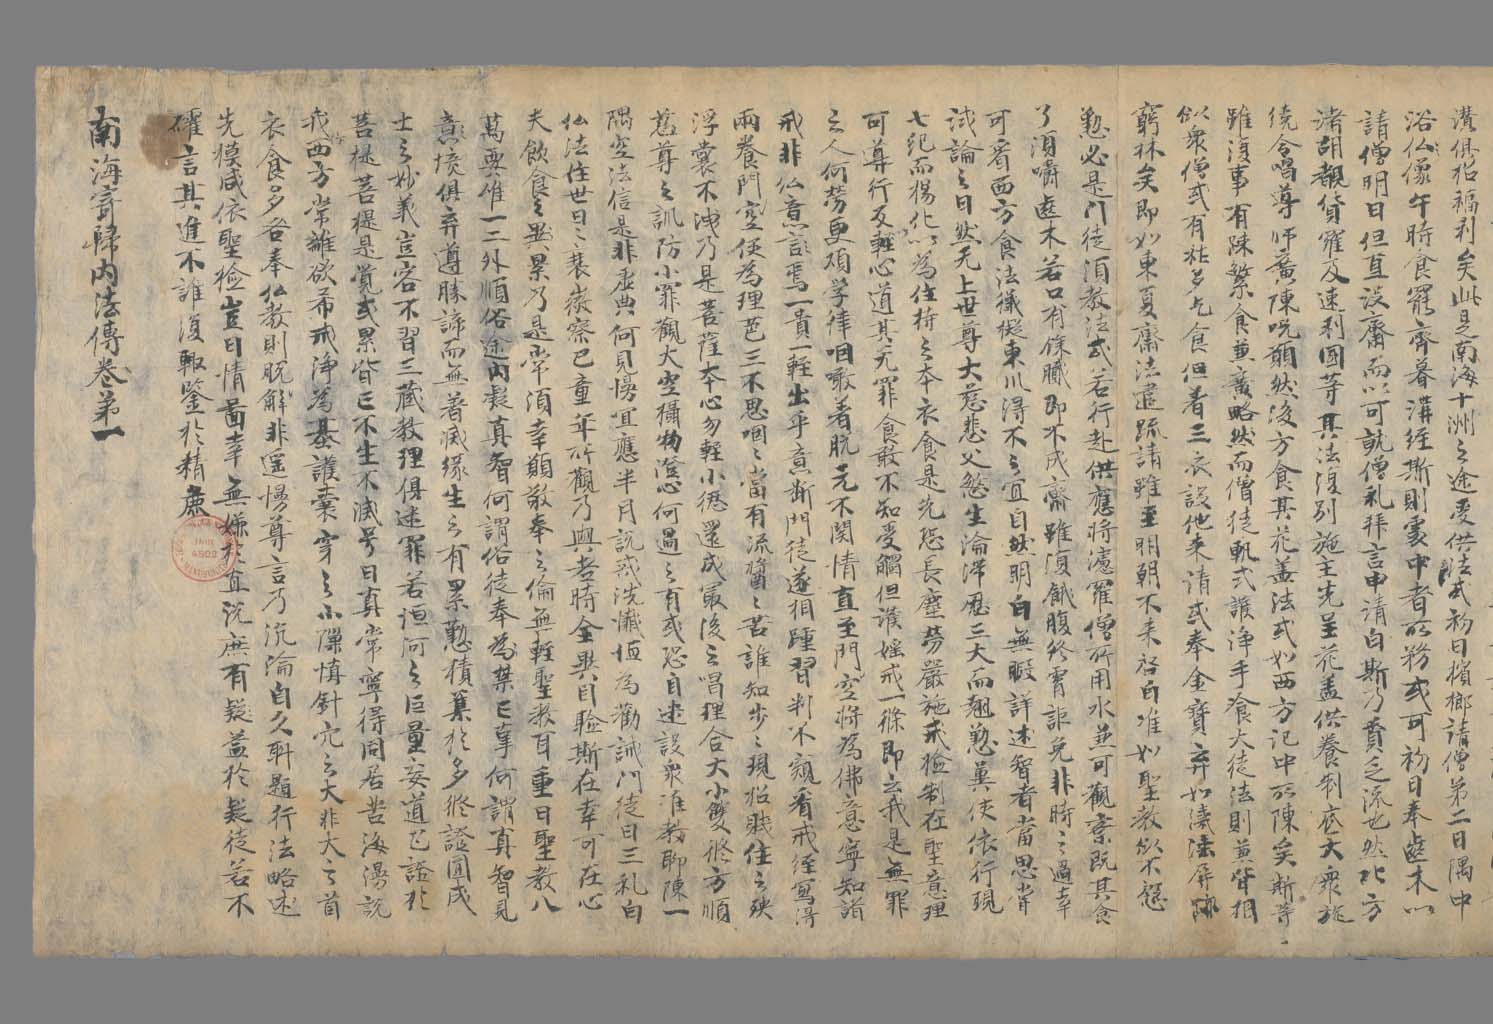 濟俱招福利矣此是南海十洲之途受供法式初日檳榔請僧第二日隅中
浴仏像午時食罷齊暮講經斯則處中者所務或可初日奉齒木以
請僧明日但直設齋而以可就僧礼拜言申請白斯乃貧乏流也然北方
諸胡覩貨羅及速利國等其法復別施主先呈花盖供養制底大衆旋
繞令唱導師廣陳呪願然後方食其花盖法式如西方記中所陳矣斯等
雖復事有陳繁食兼廣略然而僧徒軌式護淨手飡大徒法則並皆相
似衆僧或有杜多乞食但著三衣設他来請或奉金寶弃如洟唾屏跡
窮林矣即如東夏齋法遣疏請雖至明朝不来啓白准如聖教似不慇
懃必是門徒須教法式若行赴供應將濾羅僧所用水並可觀察既其食
了須嚼齒木若口有餘膩即不成齋雖復餓腹終宵詎免非時之過幸
可看西方食法儀從東川得不之宜自然明白無暇詳述智者當思甞
試論之曰然无上世尊大慈悲父愍生淪滯歷三大而翹懃冀使依行現
七紀而揚化以為住持之本衣食是先恐長塵勞嚴施戒檢制在聖意理
可尊行反輕心道其无罪食敢不知受觸但護婬戒一條即云我是無罪
之人何勞更煩学律咽噉著脫元不関情直至門空將為佛意寧知諸
戒非仏意焉一貴一輕出乎意断門徒遂相踵習判不窺看戒經寫得
兩卷門空便為理苞三不思咽咽當有流漿之苦誰知步步現招賊住之殃
浮囊不洩乃是菩薩本心勿輕小愆還成最後之唱理合大小雙修方順
慈尊之訓防小罪觀大空攝物澄心何過之有或恐自迷設衆准教聊陳一
隅空法信是非虚典何見慢宜應半月說戒洗懺恒為勸誡門徒日三礼白
仏法住世日日衰微察已童年所觀乃與老時全異目驗斯在幸可在心
夫飲食之累乃是常須幸願敬奉之倫無輕聖教耳重曰聖教八
萬要唯一二外順俗途内凝真智何謂俗徒奉為禁亡辜何謂真智見
意境俱弃遵勝諦而無著滅緣生之有累懃積集於多修證圓成
士之妙義豈容不習三藏教理俱迷罪若恒河之巨量妄道已證於
菩提菩提是覺或累皆亡不生不滅号曰真常寧得同居苦海漫説
我西方常離欲希戒淨為基護囊穿之小隙慎針穴之大非大之首
衣食多咎奉仏教則脫解非遥慢尊言乃沉淪自久聊題行法略述
先模咸依聖檢豈曰情啚幸無嫌於直説庶有疑益於疑徒若不
確言其進不誰復輙鑒於精麁
南海寄歸内法傳卷第一